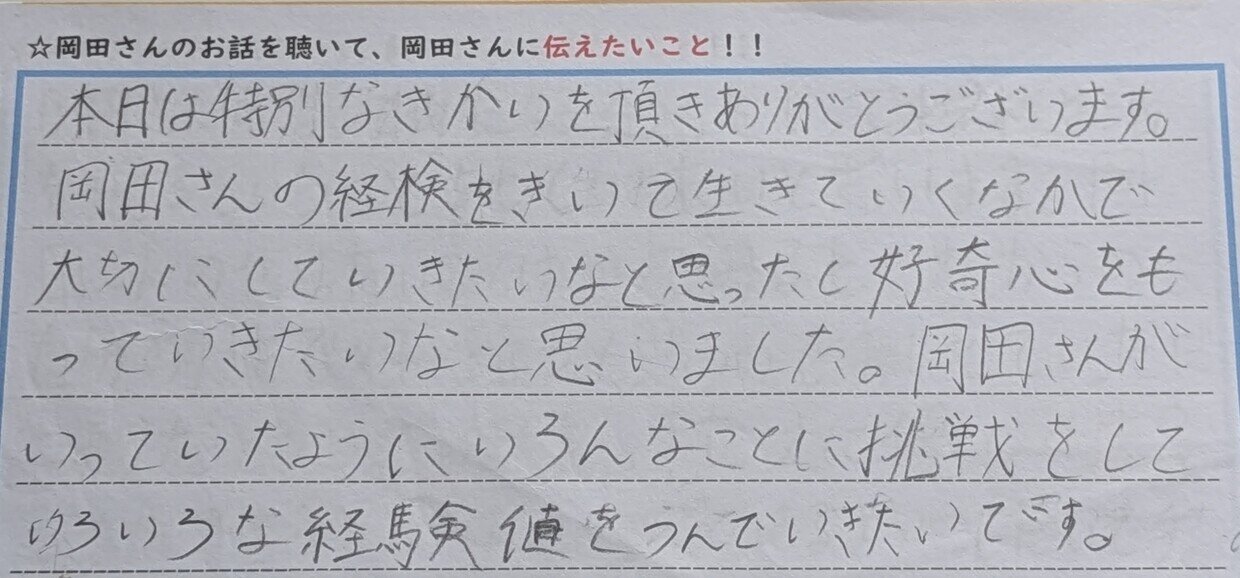 ☆岡田さんのお話を聴いて、岡田さんに伝えたいこと！！
本日は特別なきかいを頂きありがとうございます。
岡田さんの経検をきいて生きていくなかで
大切にしていきたいなと思ったし好奇心をも
っていきたいなと思いました。岡田さんが
いっていたようにいろんなことに挑戦をして
いろいろな経験値をつんでいきたいです。